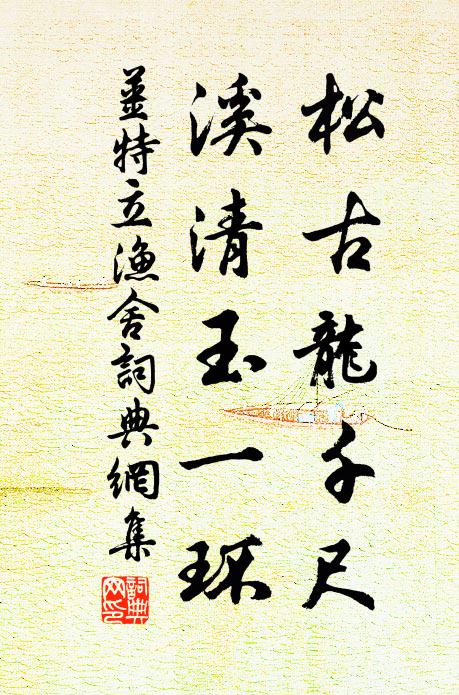 松古龍千尺
溪清玉一环
薑特立漁舍詞典網集
詞典
网印